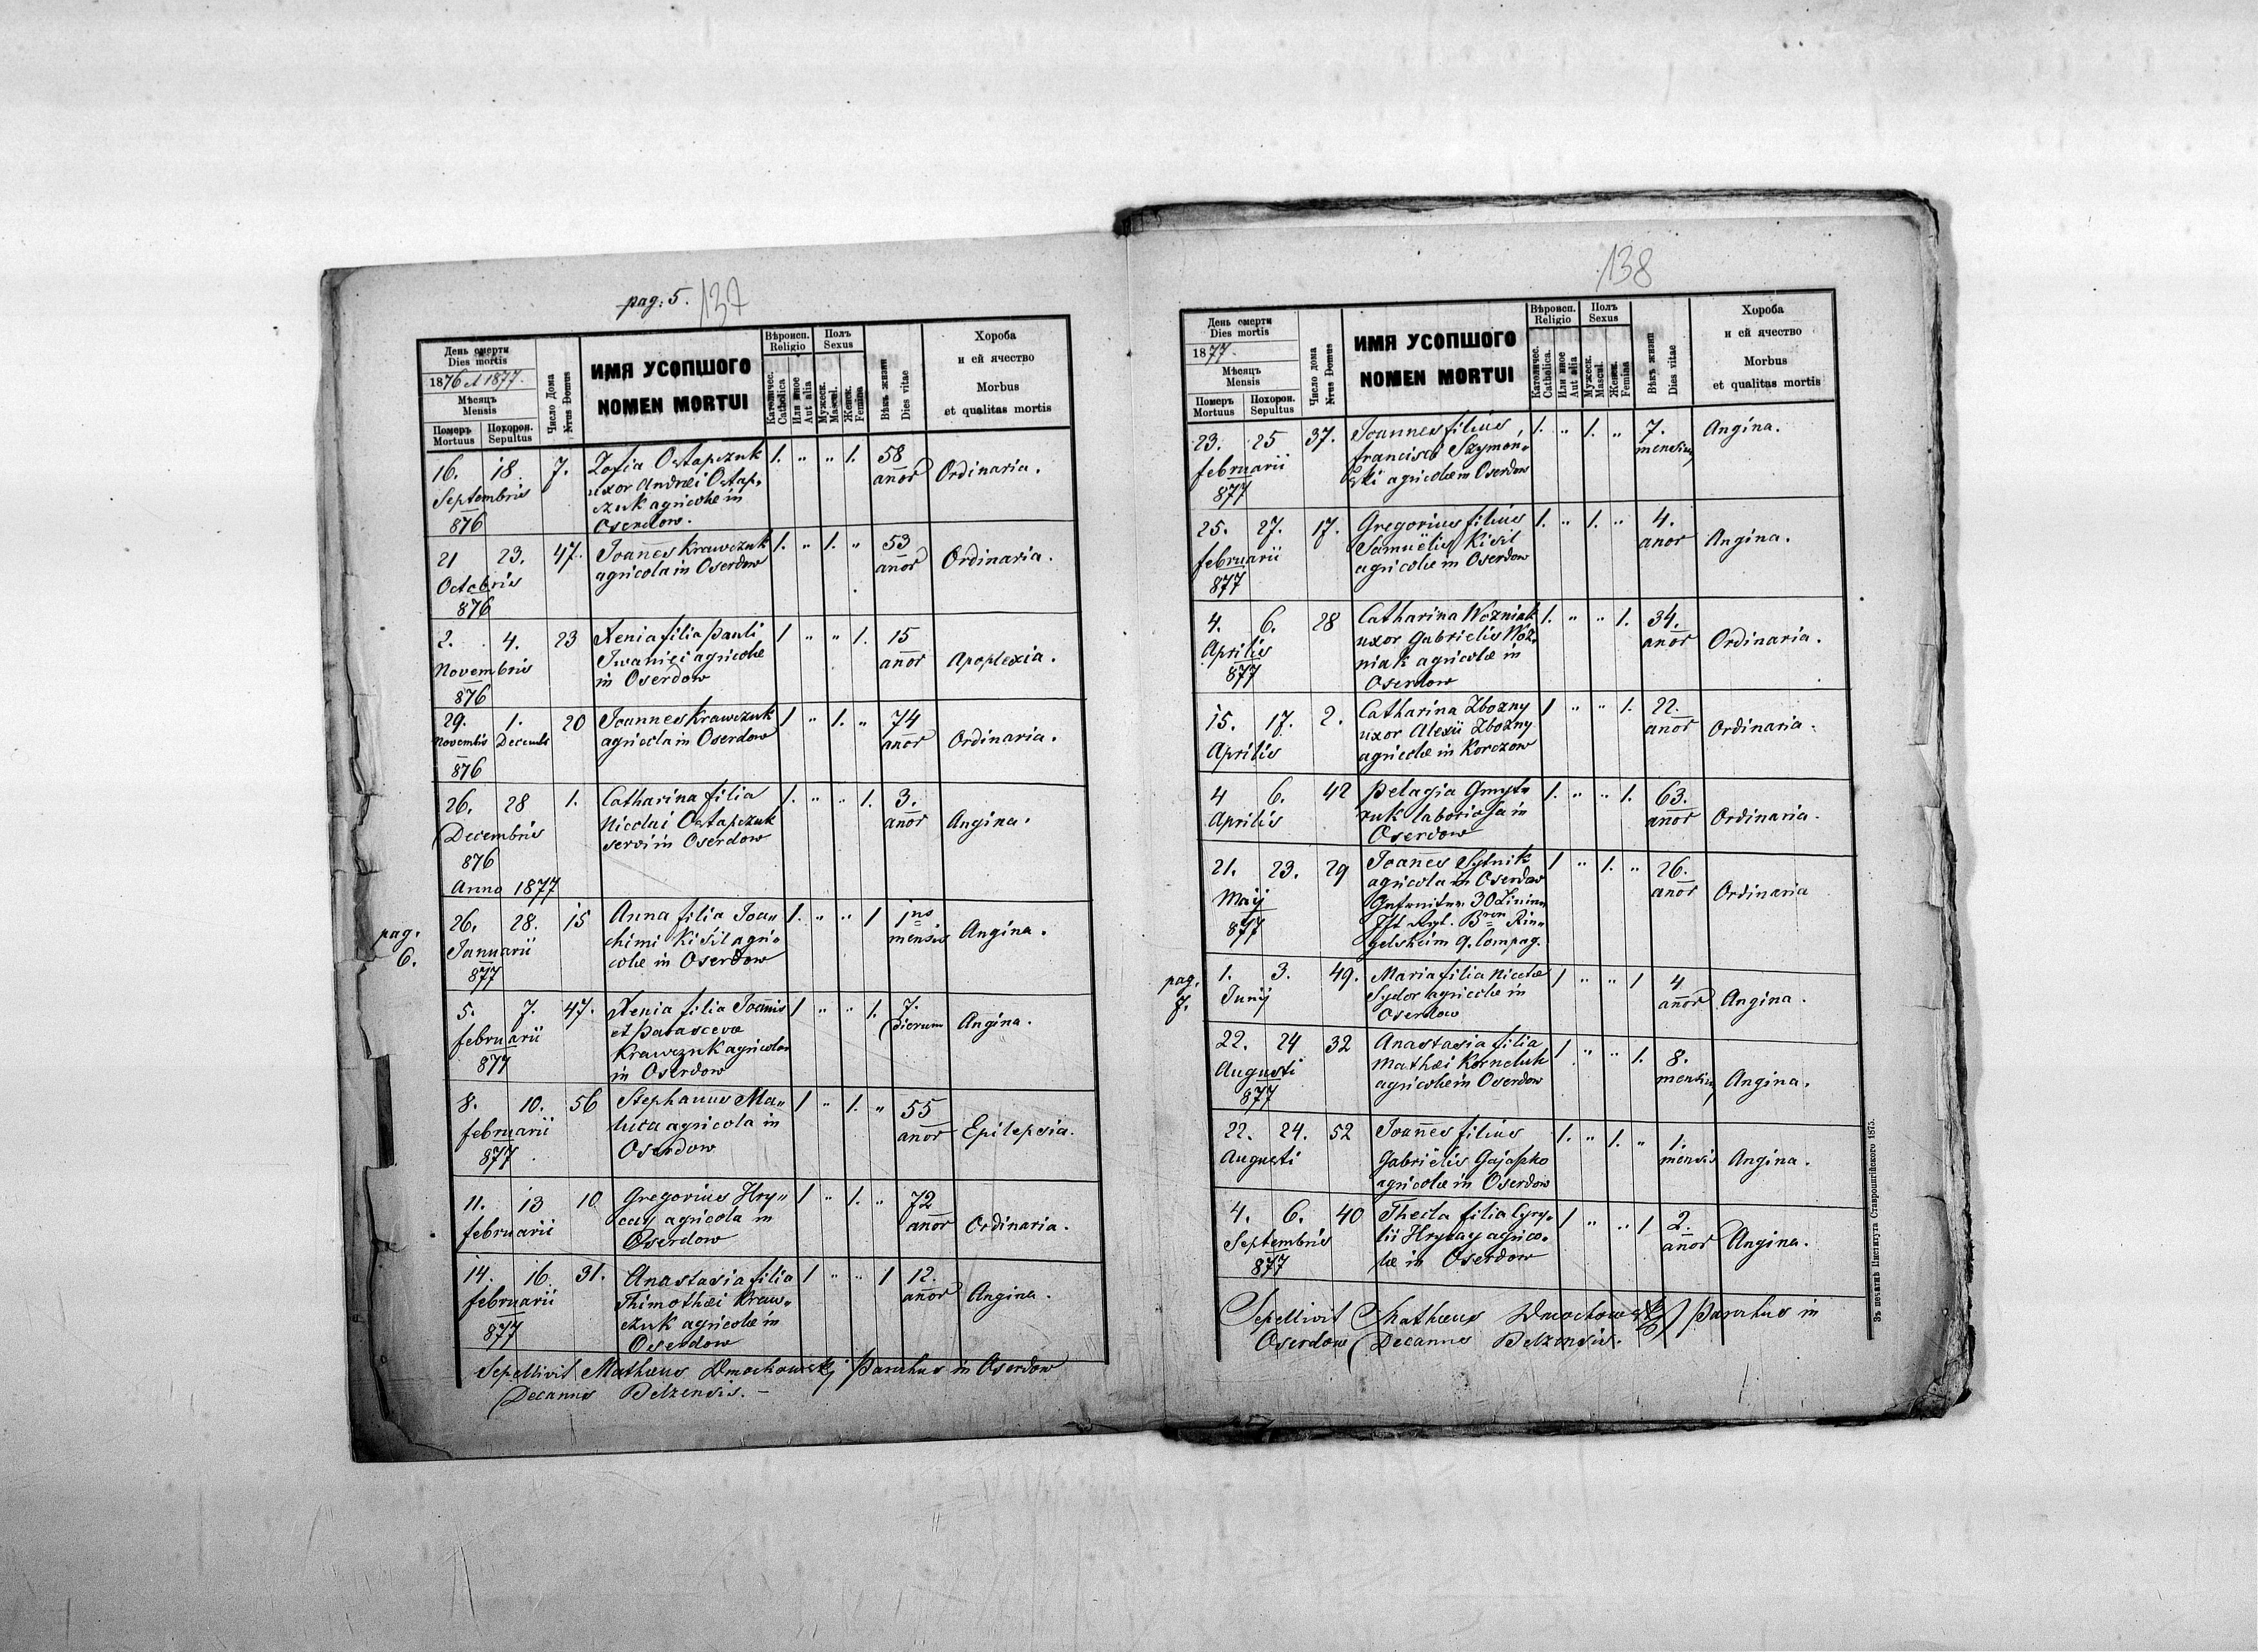 pag: 5. 137
День смерти
Dies mortis
1876 et 1877.
Мѣсяцъ
Mensis
Померъ Похорон.
Mortuus Sepultus
Число Дома
Nrus Domus
ИМЯ УСОПШОГО
NOMEN MORTUI
Вѣроисп.
Religio
Католичес.
Catholica
Или иное
Aut alia
Полъ
Sexus
Мужеск.
Mascul.
Женск.
Femina
Вѣкъ жизни
Dies vitae
Хороба
и ей ячество
Morbus
et qualitas mortis
16. 18. 7. Zofia Ostapczuk 1. " " 1. 58
Septembris uxor Andrei Ostap= anor Ordinaria.
876 czuk agricolae in
Oserdow.
21 23. 47. Joannes Krawczuk 1. " 1. " 53
Octobris agricola in Oserdow anor Ordinaria.
876
2. 4. 23 Xenia filia Pauli 1 " " 1. 15
Novembris Iwanici agricolae anor Apoplexia.
876 in Oserdow
29. 1. 20 Joannes Krawczuk 1 " 1. " 74
Novembris Decembr agricola in Oserdow anor Ordinaria.
876
26. 28 1. Catharina filia 1. " " 1. 3.
Decembris Nicolai Ostapczuk anor Angina.
876 servi in Oserdow
Anno 1877
pag. 6.
26. 28. 15 Anna filia Joa= 1. " " 1 1ns
Januarii chimi Kisil agri= mensis Angina.
877 colae in Oserdow
5. 7. 47. Xenia filia Joannis 1 " " 1. 7.
februarii et Parasceva dierum Angina.
877 Krawczuk agricolar
in Oserdow
8. 10. 56 Stephanus Ma= 1 " 1. " 55
februarii agricola in anor Epilepsia.
877 Oserdow
11. 13 10 Gregorius Hry= 1 " 1. " 72
februarii cay agricola in anor Ordinaria.
Oserdow
14. 16. 31. Anastasia filia 1 " " 1 12.
februarii Thimothei Kraw= anor Angina.
877 czuk agricolae in
Oserdow
Sepellivit Matheus Dmochowski Parochus in Oserdow
Decanus Belzensis. –
138
День смерти
Dies mortis
1877.
Мѣсяцъ
Mensis
Померъ Похорон.
Mortuus Sepultus
Число дома
Nrus Domus
ИМЯ УСОПШОГО
NOMEN MORTUI
Вѣроисп.
Religio
Католичес.
Catholica.
Или иное
Aut alia
Полъ
Sexus
Мужеск.
Mascul.
Женск.
Femina
Вѣкъ жизни
Dies vitae
Хороба
и ей ячество
Morbus
et qualitas mortis
23. 25 37. Joannes filius 1. " 1. " 7. Angina.
februarii francisci Szymon= mensium
877 ski agricolae in Oserdow
25. 27. 17. Gregorius filius 1. " 1. " 4.
februarii Samuëlis Kisil anor Angina.
877 agricolae in Oserdow
4. 6. 28 Catharina Wozniak 1. " " 1. 34.
Aprilis uxor Gabrielis Woz= anor Ordinaria.
877 niak agricolae in
Oserdow
15. 17. 2. Catharina Zbozny 1 " " 1. 22.
Aprilis uxor Alexii Zbozny anor Ordinaria.
agricolae in Korczow
4 6. 42 Pelagia Gmyt= 1. " " 1. 63.
Aprilis ruk laboriosa in anor Ordinaria.
Oserdow
21. 23. 29 Joanes Sytnik 1 " 1. " 26.
Maij agricola in Oserdow anor Ordinaria
877 30 Linien
Bron Rin=
gelsheim 9. Compag.
pag. 7.
1. 3. 49. Maria filia Nicolae 1 " " 1 4
Junij Sydor agricolae in anor Angina.
Oserdow
22. 24 32 Anastasia filia 1 " " 1. 8.
Augusti Mathei Korneluk mensium Angina.
877 agricolae in Oserdow
22. 24. 52 Joannes filius 1. " 1. " 1.
Augusti Gabriëlis Gajapko mensis Angina.
agricolae in Oserdow
4. 6. 40 Thecla filia Cyry= 1 " " 1 2.
Septembris lii Hrycay agrico= anor Angina.
877 lae in Oserdow
Sepellivit Matheus Dmochowski Parochus in
Oserdow Decanus Belzensis.
Зъ печатнѣ Института Ставропигійского 1875.